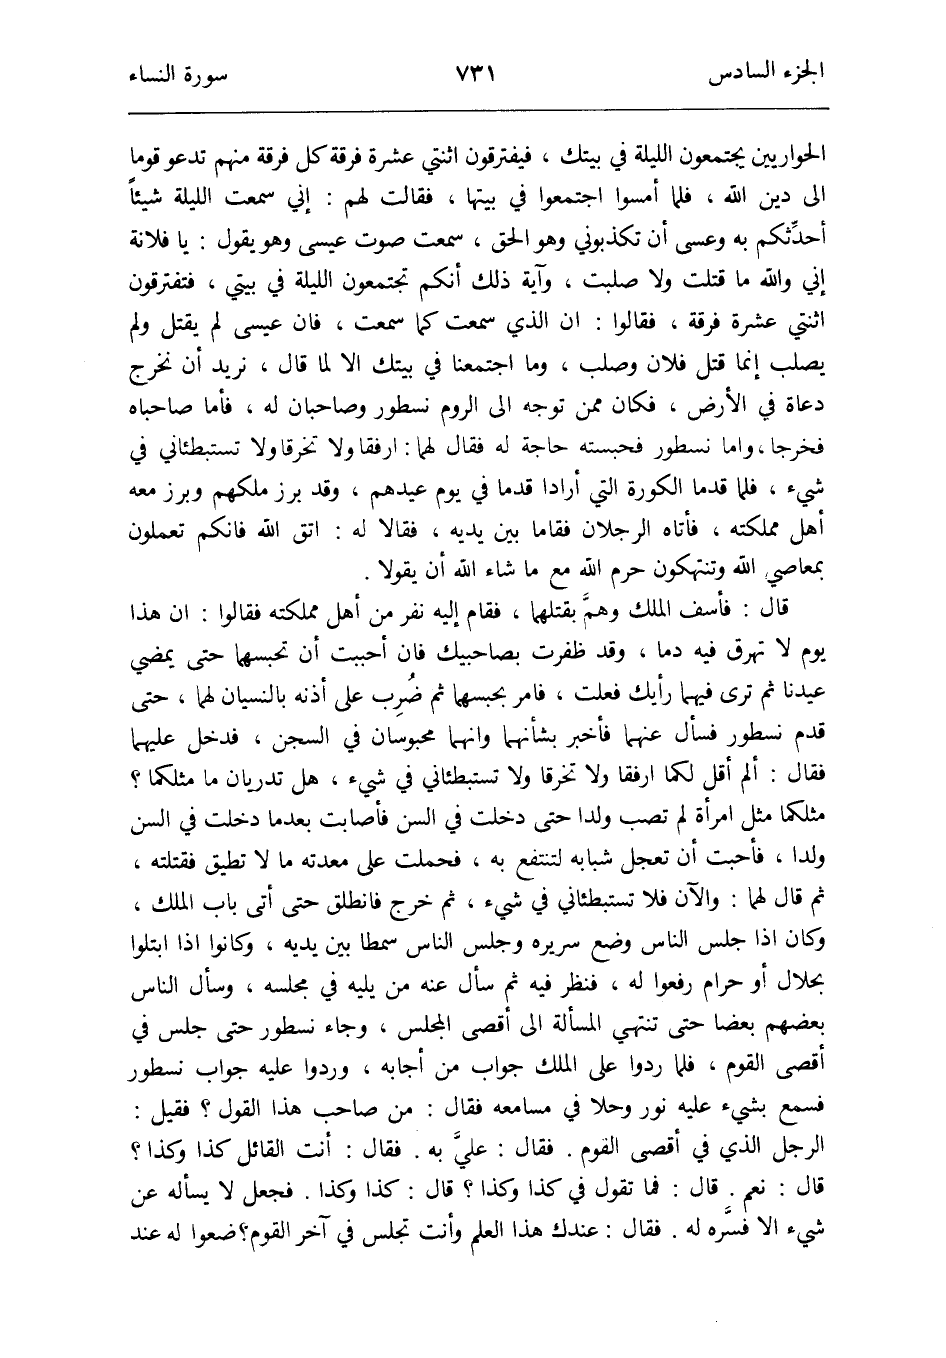 الجزء السادس ٧٣١ سورة النساء
الحواريين يجتمعون الليلة في بيتك ، فيفترقون اثنتي عشرة فرقة كل فرقة منهم تدعو قوما
الى دين الله ، فلما أمسوا اجتمعوا في بيتها ، فقالت لهم : إني سمعت الليلة شيئاً
أحدِّثكم به وعسى أن تكذبوني وهو الحق ، سمعت صوت عيسى وهو يقول : يا فلانة
إني والله ما قتلت ولا صلبت ، وآية ذلك أنكم تجتمعون الليلة في بيتي ، فتفترقون
اثنتي عشرة فرقة ، فقالوا : ان الذي سمعت كما سمعت ، فان عيسى لم يقتل ولم
يصلب إنما قتل فلان وصلب ، وما اجتمعنا في بيتك الا لما قال ، نريد أن نخرج
دعاة في الأرض ، فكان ممن توجه الى الروم نسطور وصاحبان له ، فأما صاحباه
فخرجا ، واما نسطور فحبسته حاجة له فقال لهما : ارفقا ولا تخرقا ولا تستبطئاني في
شيء ، فلما قدما الكورة التي أرادا قدما في يوم عيدهم ، وقد برز ملكهم وبرز معه
أهل مملكته ، فأتاه الرجلان فقاما بين يديه ، فقالا له : اتق الله فانكم تعملون
بمعاصي الله وتنتهكون حرم الله مع ما شاء الله أن يقولا .
قال : فأسف الملك وهمَّ بقتلهما ، فقام إليه نفر من أهل مملكته فقالوا : ان هذا
يوم لا تهرق فيه دما ، وقد ظفرت بصاحبيك فان أحببت أن تحبسهما حتى يمضي
عيدنا ثم ترى فيهما رأيك فعلت ، فامر بحبسهما ثم ضُرِب على أذنه بالنسيان لهما ، حتى
قدم نسطور فسأل عنهما فأخبر بشأنهما وانهما محبوسان في السجن ، فدخل عليهما
فقال : ألم أقل لكما ارفقا ولا تخرقا ولا تستبطئاني في شيء ، هل تدريان ما مثلكما ؟
مثلكما مثل امرأة لم تصب ولدا حتى دخلت في السن فأصابت بعدما دخلت في السن
ولدا ، فأحبت أن تعجل شبابه لتنتفع به ، فحملت على معدته ما لا تطيق فقتلته ،
ثم قال لهما : والآن فلا تستبطئاني في شيء ، ثم خرج فانطلق حتى أتى باب الملك ،
وكان اذا جلس الناس وضع سريره وجلس الناس سمطا بين يديه ، وكانوا اذا ابتلوا
بحلال أو حرام رفعوا له ، فنظر فيه ثم سأل عنه من يليه في مجلسه ، وسأل الناس
بعضهم بعضا حتى تنتهي المسألة الى أقصى المجلس ، وجاء نسطور حتى جلس في
أقصى القوم ، فلما ردوا على الملك جواب من أجابه ، وردوا عليه جواب نسطور
فسمع بشيء عليه نور وحلا في مسامعه فقال : من صاحب هذا القول ؟ فقيل :
الرجل الذي في أقصى القوم . فقال : عليَّ به . فقال : أنت القائل كذا وكذا ؟
قال : نعم . قال : فما تقول في كذا وكذا ؟ قال : كذا وكذا . فجعل لا يسأله عن
شيء الا فسَّره له . فقال : عندك هذا العلم وأنت تجلس في آخر القوم؟ ضعوا له عند